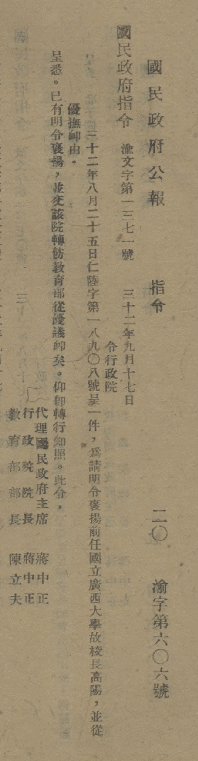 國民政府公報　指令　二〇　渝字第六〇六號
國民政府指令　渝文字第一三七一號　三十二年九月十七日
令行政院
三十二年八月二十五日仁陸字第一八九〇八號呈一件，爲請明令褒揚前任國立廣西大學故校長高陽，並從
優撫卹由。
呈悉。已有明令褒揚，並交該院轉飭教育部從優議卹矣。仰卽轉行知照。此令。
代理國民政府主席　蔣中正
行政院院長　蔣中正
教育部部長　陳立夫